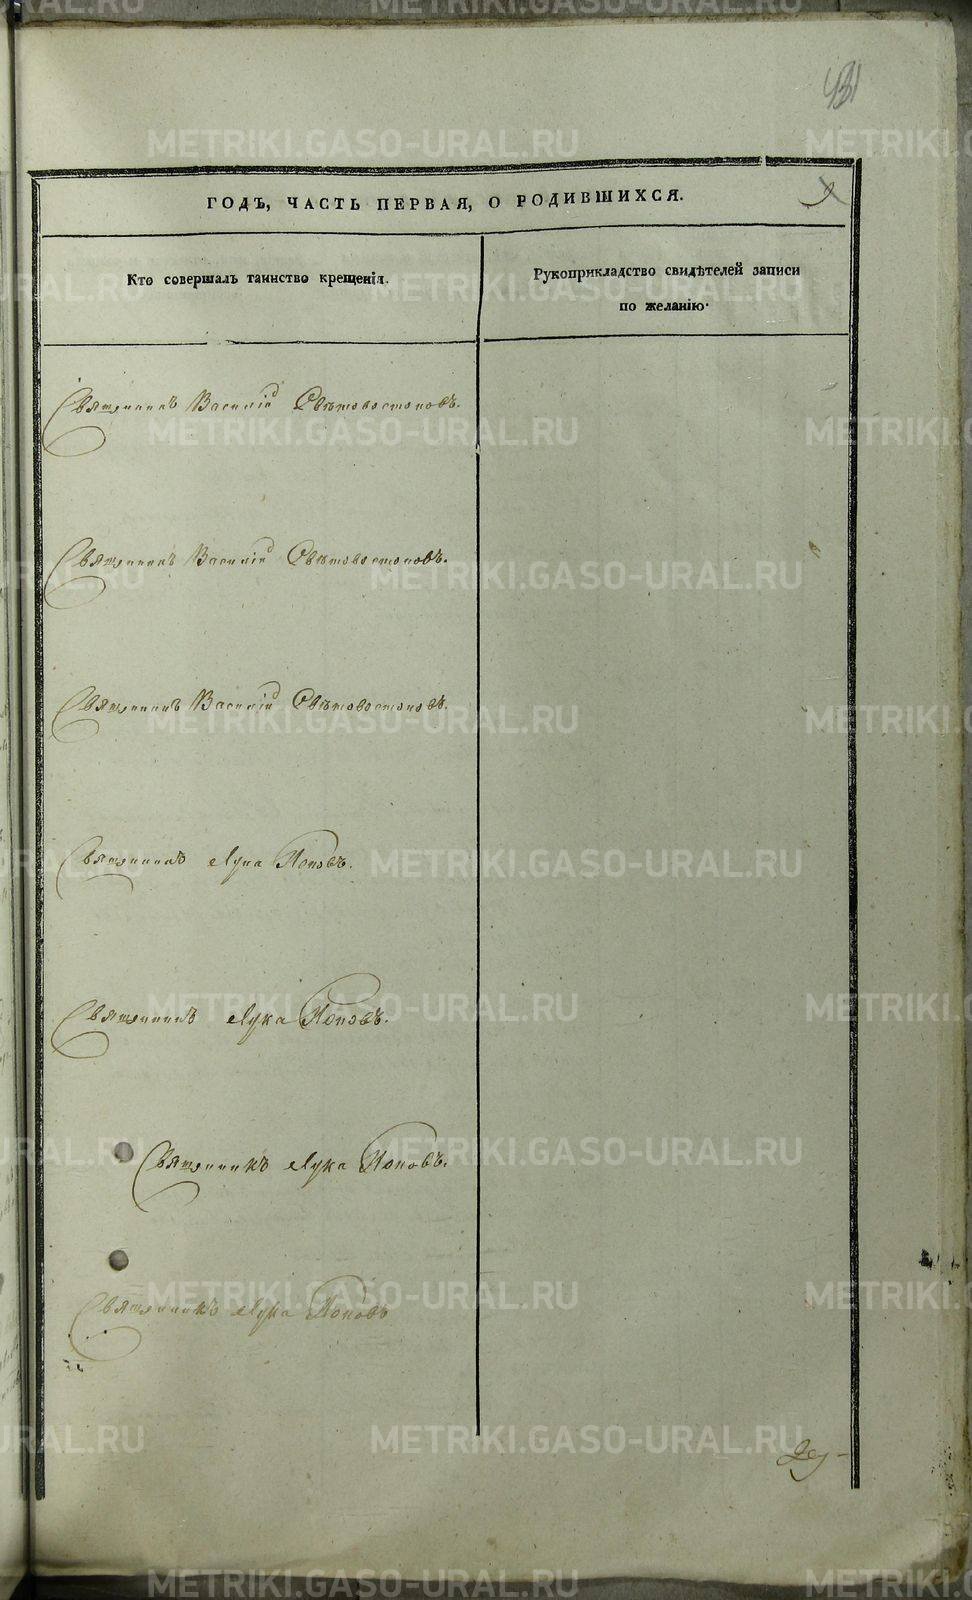 431
ГОДЪ, ЧАСТЬ ПЕРВАЯ, О РОДИВШИХСЯ.
9
Кто совершалъ таинство крещенія.
Рукоприкладство свидѣтелей записи
по желанію.
Священникъ Василій Свѣтовостоковъ.
Священникъ Василій Свѣтовостоковъ.
Священникъ Василій Свѣтовостоковъ.
Священникъ Лука Поповъ.
Священникъ Лука Поповъ.
Священникъ Лука Поповъ.
Священникъ Лука Поповъ
METRIKI.GASO-URAL.RU